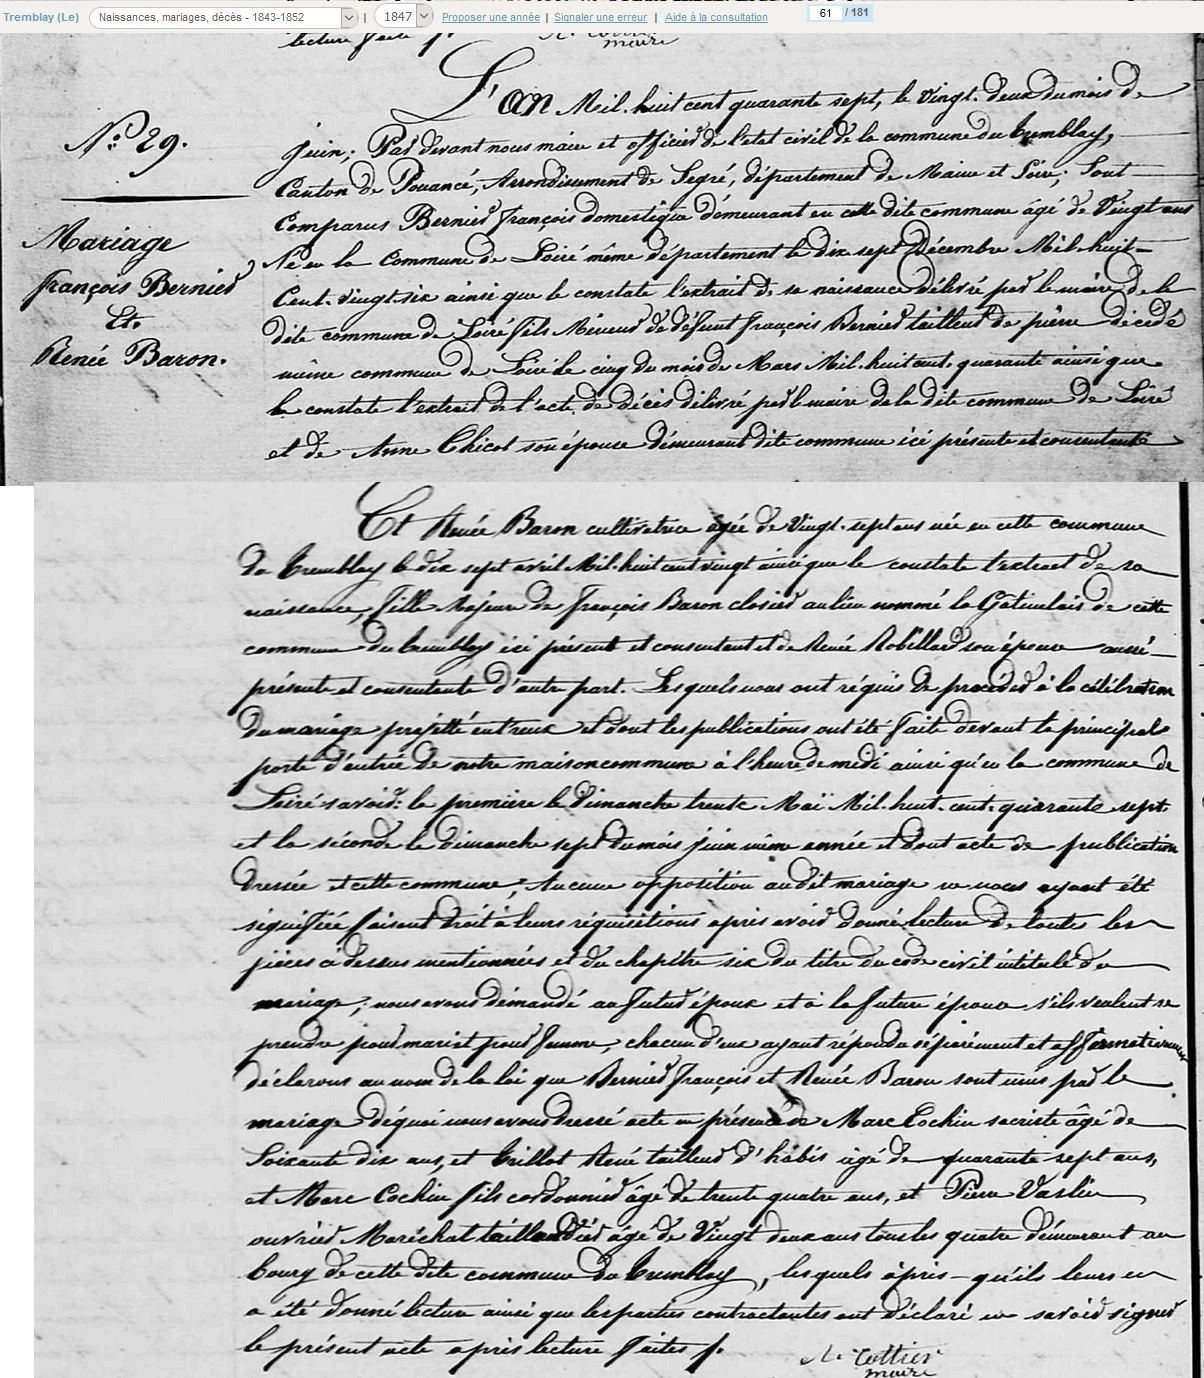 Tremblay (Le) Naissances, mariages, décès - 1843-1852 | 1847 Proposer une année | Signaler une erreur | Aide à la consultation 61 / 181
lecture faite
maire
L'an Mil-huit cent quarante sept, le vingt-deux du mois de
N° 29.
juin; Par devant nous maire et officier de l'etat civil de la commune du tremblay,
Canton de Pouancé, Arrondissement de Segré, département de Maine et Loire; Sont
Comparus Bernier françois domestique démeurant en cette dite commune âgé de Vingt ans
Mariage
françois Bernier
Et.
Renée Baron.
Né en la Commune de Loiré même département le dix-sept Décembre Mil-huit-
Cent-vingt-six ainsi que le constate l'extrait de sa naissance délivré par le maire de la
dite commune de Loiré fils Mineur de défunt françois Bernier tailleur de pierre décédé
même commune de Loiré le cinq du mois de Mars Mil-huit cent-quarante ainsi que
le constate l'extrait de l'acte de décès délivré par le maire de la dite commune de Loiré
et de Anne Chicot son épouse démeurant dite commune ici présente et consentente
Et Renée Baron cultivatrice âgée de Vingt-sept ans née en cette commune
du tremblay le dix sept avril Mil-huit cent vingt ainsi que le constate l'extrait de sa
naissance, fille Majeure de françois Baron closier au lieu nommé la de cette
commune du tremblay ici présent et consentant et de Renée Robillard son épouse aussi
présente et consentente d'autre part. Lesquels nous ont réquis de procéder à la célébration
du mariage projetté entreux et dont les publications ont été faite devant la principale
porte d'entrée de notre maison commune à l'heure de medi ainsi qu'en la commune de
Loiré savoir: la première le dimanche trente Maï Mil-huit-cent-quarante sept
et la séconde le dimanche sept du mois juin même année et dont acte de publication
dressée et cette commune; Aucune opposition audit mariage ne nous ayant été
signifiée faisant droit à leurs réquisitions après avoir donné lecture de toutes les
pièces ci dessus mentionnées et du chapitre six du titre du code civil intitulé du
mariage; nous avons démandé au futur époux et à la future épouse s'ils veulent se
prendre pour mari et pour femme, chacun d'eux ayant répondu séparément et affirmativement
déclarons au nom de la loi que Bernier françois et Renée Baron sont unis par le
mariage déquoi nous avons dressé acte en présence de Marc Cochin sacriste âgé de
Soixante dix ans, et trillot René tailleur d'habis âgé de quarante sept ans,
et Marc Cochin fils cordonnier âgé de trente quatre ans, et Pierre Vaslin
ouvrier Maréchal taillandier âgé de Vingt deux ans tous les quatre démeurant au
bourg de cette dite commune du tremblay, lesquels après-qu'ils leurs en
a été donné lecture ainsi que les parties contractantes ont déclaré ne savoir signer
le présent acte après lecture faites
maire